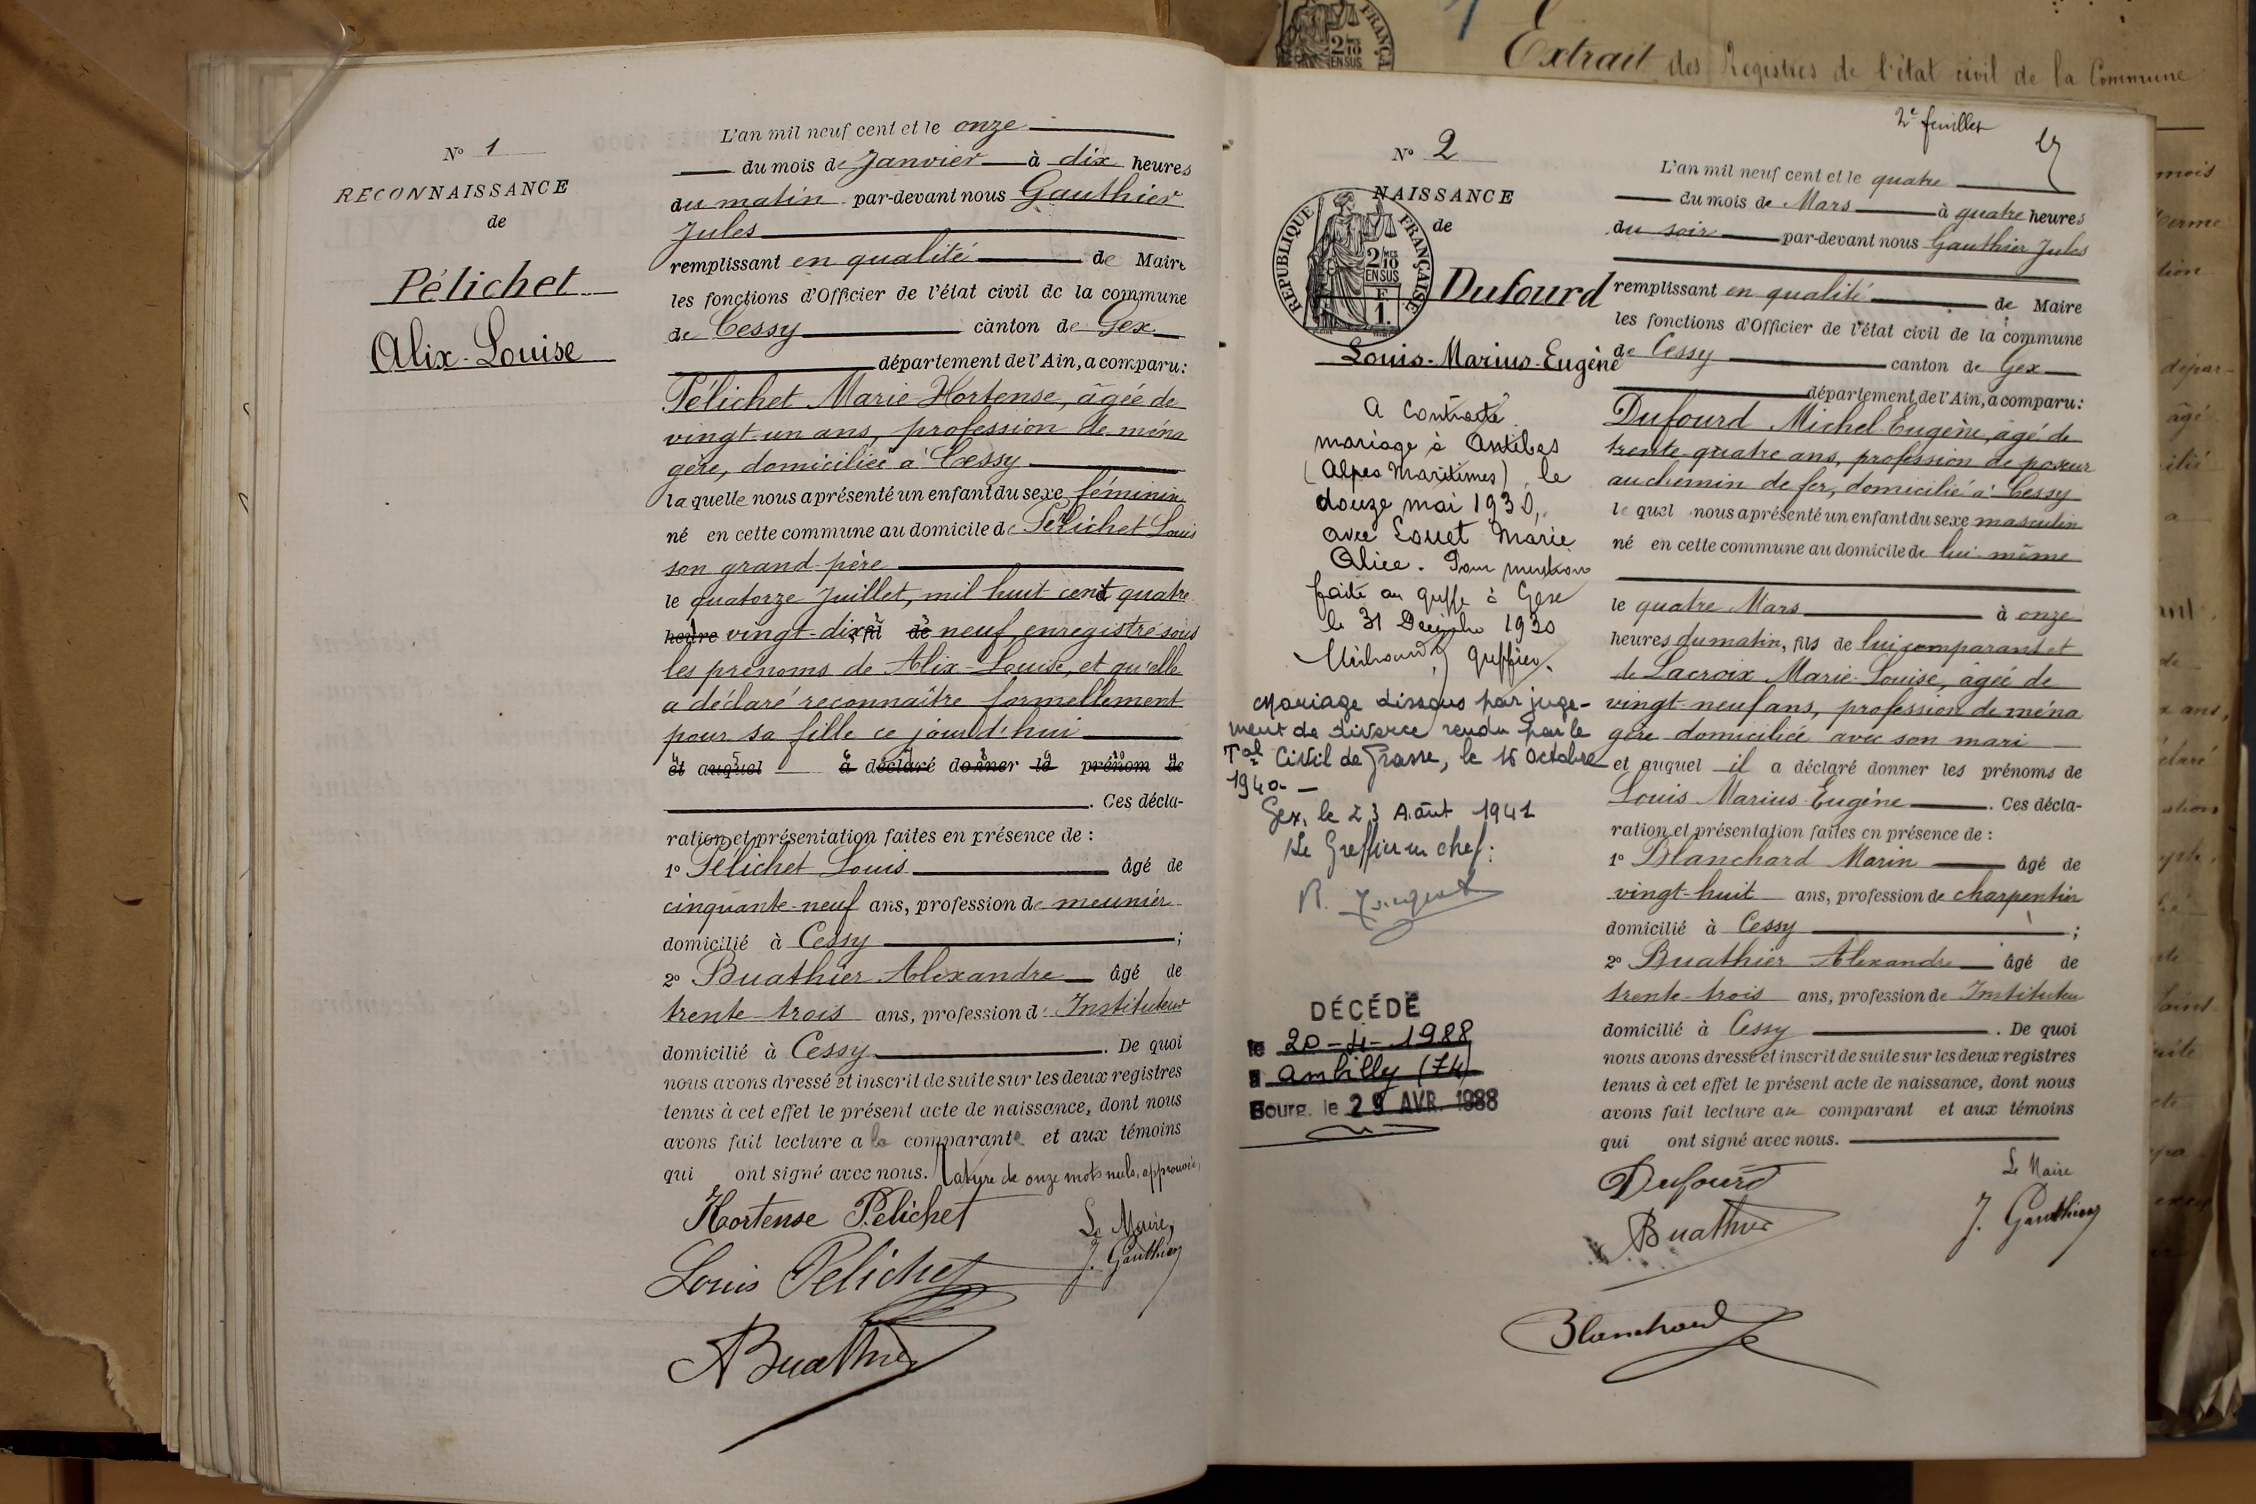 N° 1
RECONNAISSANCE
de
Pélichet
Alix-Louise
L'an mil neuf cent et le onze
du mois de Janvier à dix heures
du matin par-devant nous Gauthier
Jules
remplissant en qualité de Maire
les fonctions d'Officier de l'état civil de la commune
de Cessy canton de Gex
département de l'Ain, a comparu:
Pélichet Marie-Hortense, âgée de
vingt-un ans, profession de ména
gère, domiciliée à Cessy
laquelle nous a présenté un enfant du sexe féminin
né en cette commune au domicile de Pélichet Louis
son grand-père
le quatorze Juillet, mil huit cent quatre
heure vingt-dix fil de neuf, enregistré sous
les prénoms de Alix-Louise, et qu'elle
a déclaré reconnaître formellement
pour sa fille ce jourd'hui
et auquel a déclaré donner le prénom de
. Ces décla-
ration et présentation faites en présence de :
1° Pélichet Louis âgé de
cinquante-neuf ans, profession de meunier
domicilié à Cessy ;
2° Buathier Alexandre âgé de
trente-trois ans, profession d' Instituteur
domicilié à Cessy . De quoi
nous avons dressé et inscrit de suite sur les deux registres
tenus à cet effet le présent acte de naissance, dont nous
avons fait lecture a la comparante et aux témoins
qui ont signé avec nous. Rature de onze mots nuls, approuvée,
Hortense Pélichet
Le Maire,
J. Gauthier
Louis Pelichet
ABuathier
Extrait des Registres de l'état civil de la Commune
2e feuillet
N° 2
NAISSANCE
de
RÉPUBLIQUE FRANÇAISE
2/10 EN SUS
1.
Dufourd
Louis-Marius-Eugène
A contracté
mariage à Antibes
(Alpes Maritimes), le
douze mai 1930,
avec Louet Marie
Alice. Pour mention
faite au greffe à Gex
le 31 Décembre 1930
greffier.
Mariage dissous par juge-
ment de divorce rendu par le
Tal Civil de Grasse, le 16 Octobre
1940 —
Gex, le 23 Août 1941
Le Greffier en chef:
DÉCÉDÉ
le 20-4-1988
à Ambilly (74)
Bourg, le 29 AVR. 1988
L'an mil neuf cent et le quatre
du mois de Mars à quatre heures
du soir par-devant nous Gauthier Jules
remplissant en qualité de Maire
les fonctions d'Officier de l'état civil de la commune
de Cessy canton de Gex
département de l'Ain, a comparu:
Dufourd Michel-Eugène, âgé de
trente-quatre ans, profession de poseur
au chemin de fer, domicilié à Cessy
lequel nous a présenté un enfant du sexe masculin
né en cette commune au domicile de lui-même
le quatre Mars à onze
heures du matin, fils de lui comparant et
de Lacroix Marie-Louise, âgée de
vingt-neuf ans, profession de ména
gère domiciliée avec son mari
et auquel il a déclaré donner les prénoms de
Louis Marius Eugène . Ces décla-
ration et présentation faites en présence de :
1° Blanchard Marin âgé de
vingt-huit ans, profession de charpentier
domicilié à Cessy ;
2° Buathier Alexandre âgé de
trente-trois ans, profession de Instituteur
domicilié à Cessy . De quoi
nous avons dressé et inscrit de suite sur les deux registres
tenus à cet effet le présent acte de naissance, dont nous
avons fait lecture au comparant et aux témoins
qui ont signé avec nous.
Dufourd
Le Maire
J. Gauthier
ABuathier
Blanchard